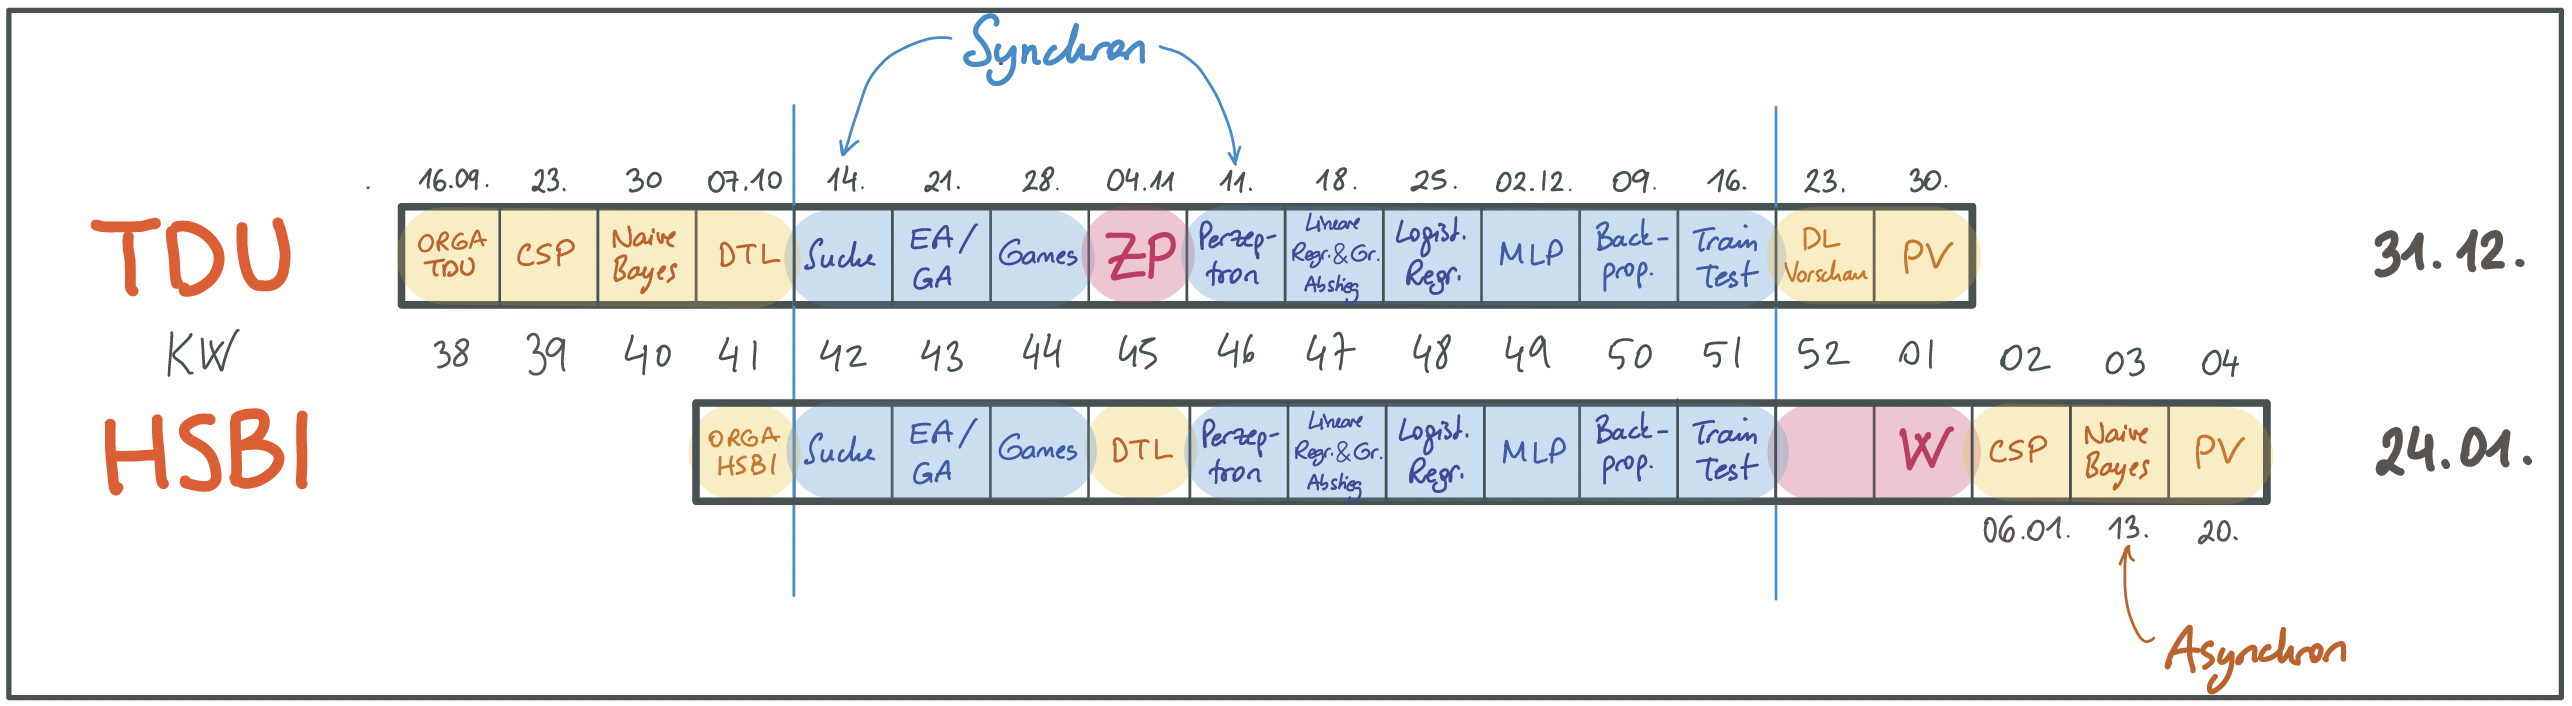 Synchron
16.09. 23. 30 07.10 14. 21. 28. 04.11 11. 18. 25. 02.12. 09. 16. 23. 30.
TDU
ORGA
TDU
CSP
Naive
Bayes
DTL
Suche
EA/
GA
Games
ZP
Perzep-
tron
Lineare
Regr.&Gr.
Abstieg
Logist.
Regr.
MLP
Back-
prop.
Train
Test
DL
Vorschau
PV
31.12.
KW 38 39 40 41 42 43 44 45 46 47 48 49 50 51 52 01 02 03 04
HSBI
ORGA
HSBI
Suche
EA/
GA
Games
DTL
Perzep-
tron
Lineare
Regr.&Gr.
Abstieg
Logist.
Regr.
MLP
Back-
prop.
Train
Test
W
CSP
Naive
Bayes
PV
24.01.
06.01. 13. 20.
Asynchron